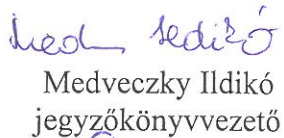 Medveczky Ildikó
jegyzőkönyvvezető